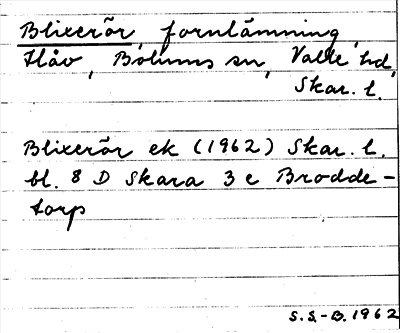 Blixerör, fornlämning,
Håv, Bolums sn, Valle hd,
Skar. l.
Blixerör ek (1962) Skar. l.
bl. 8 D Skara 3 e Brodde-
torp
S.S.-B. 1962